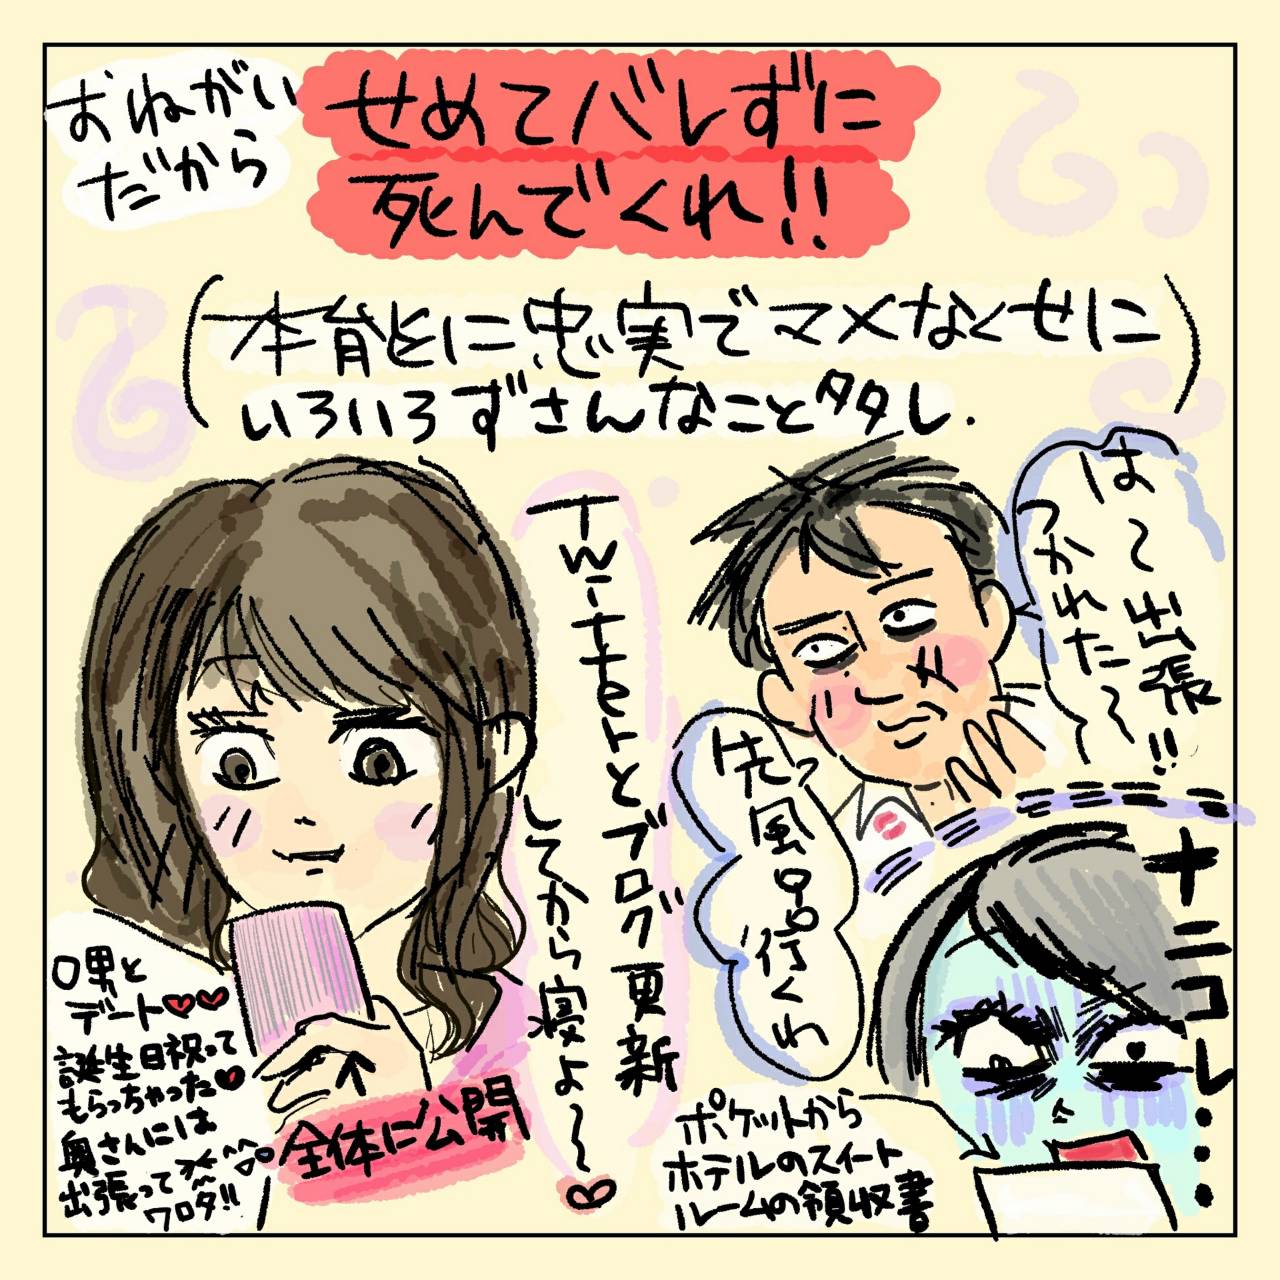 おねがい
だから
せめてバレずに
死んでくれ!!
(本能に忠実でマメなくせに
いろいろずさんなこと多し.)
Twitterとブログ更新
してから寝よ〜♡
は〜出張!!
つかれた〜
先風呂行くわ
ナニコレ・・・
〇男と
デート♥♥
誕生日祝って
もらっちゃった♥
奥さんには
出張って
ワロタ!!
全体に公開
ポケットから
ホテルのスイート
ルームの領収書